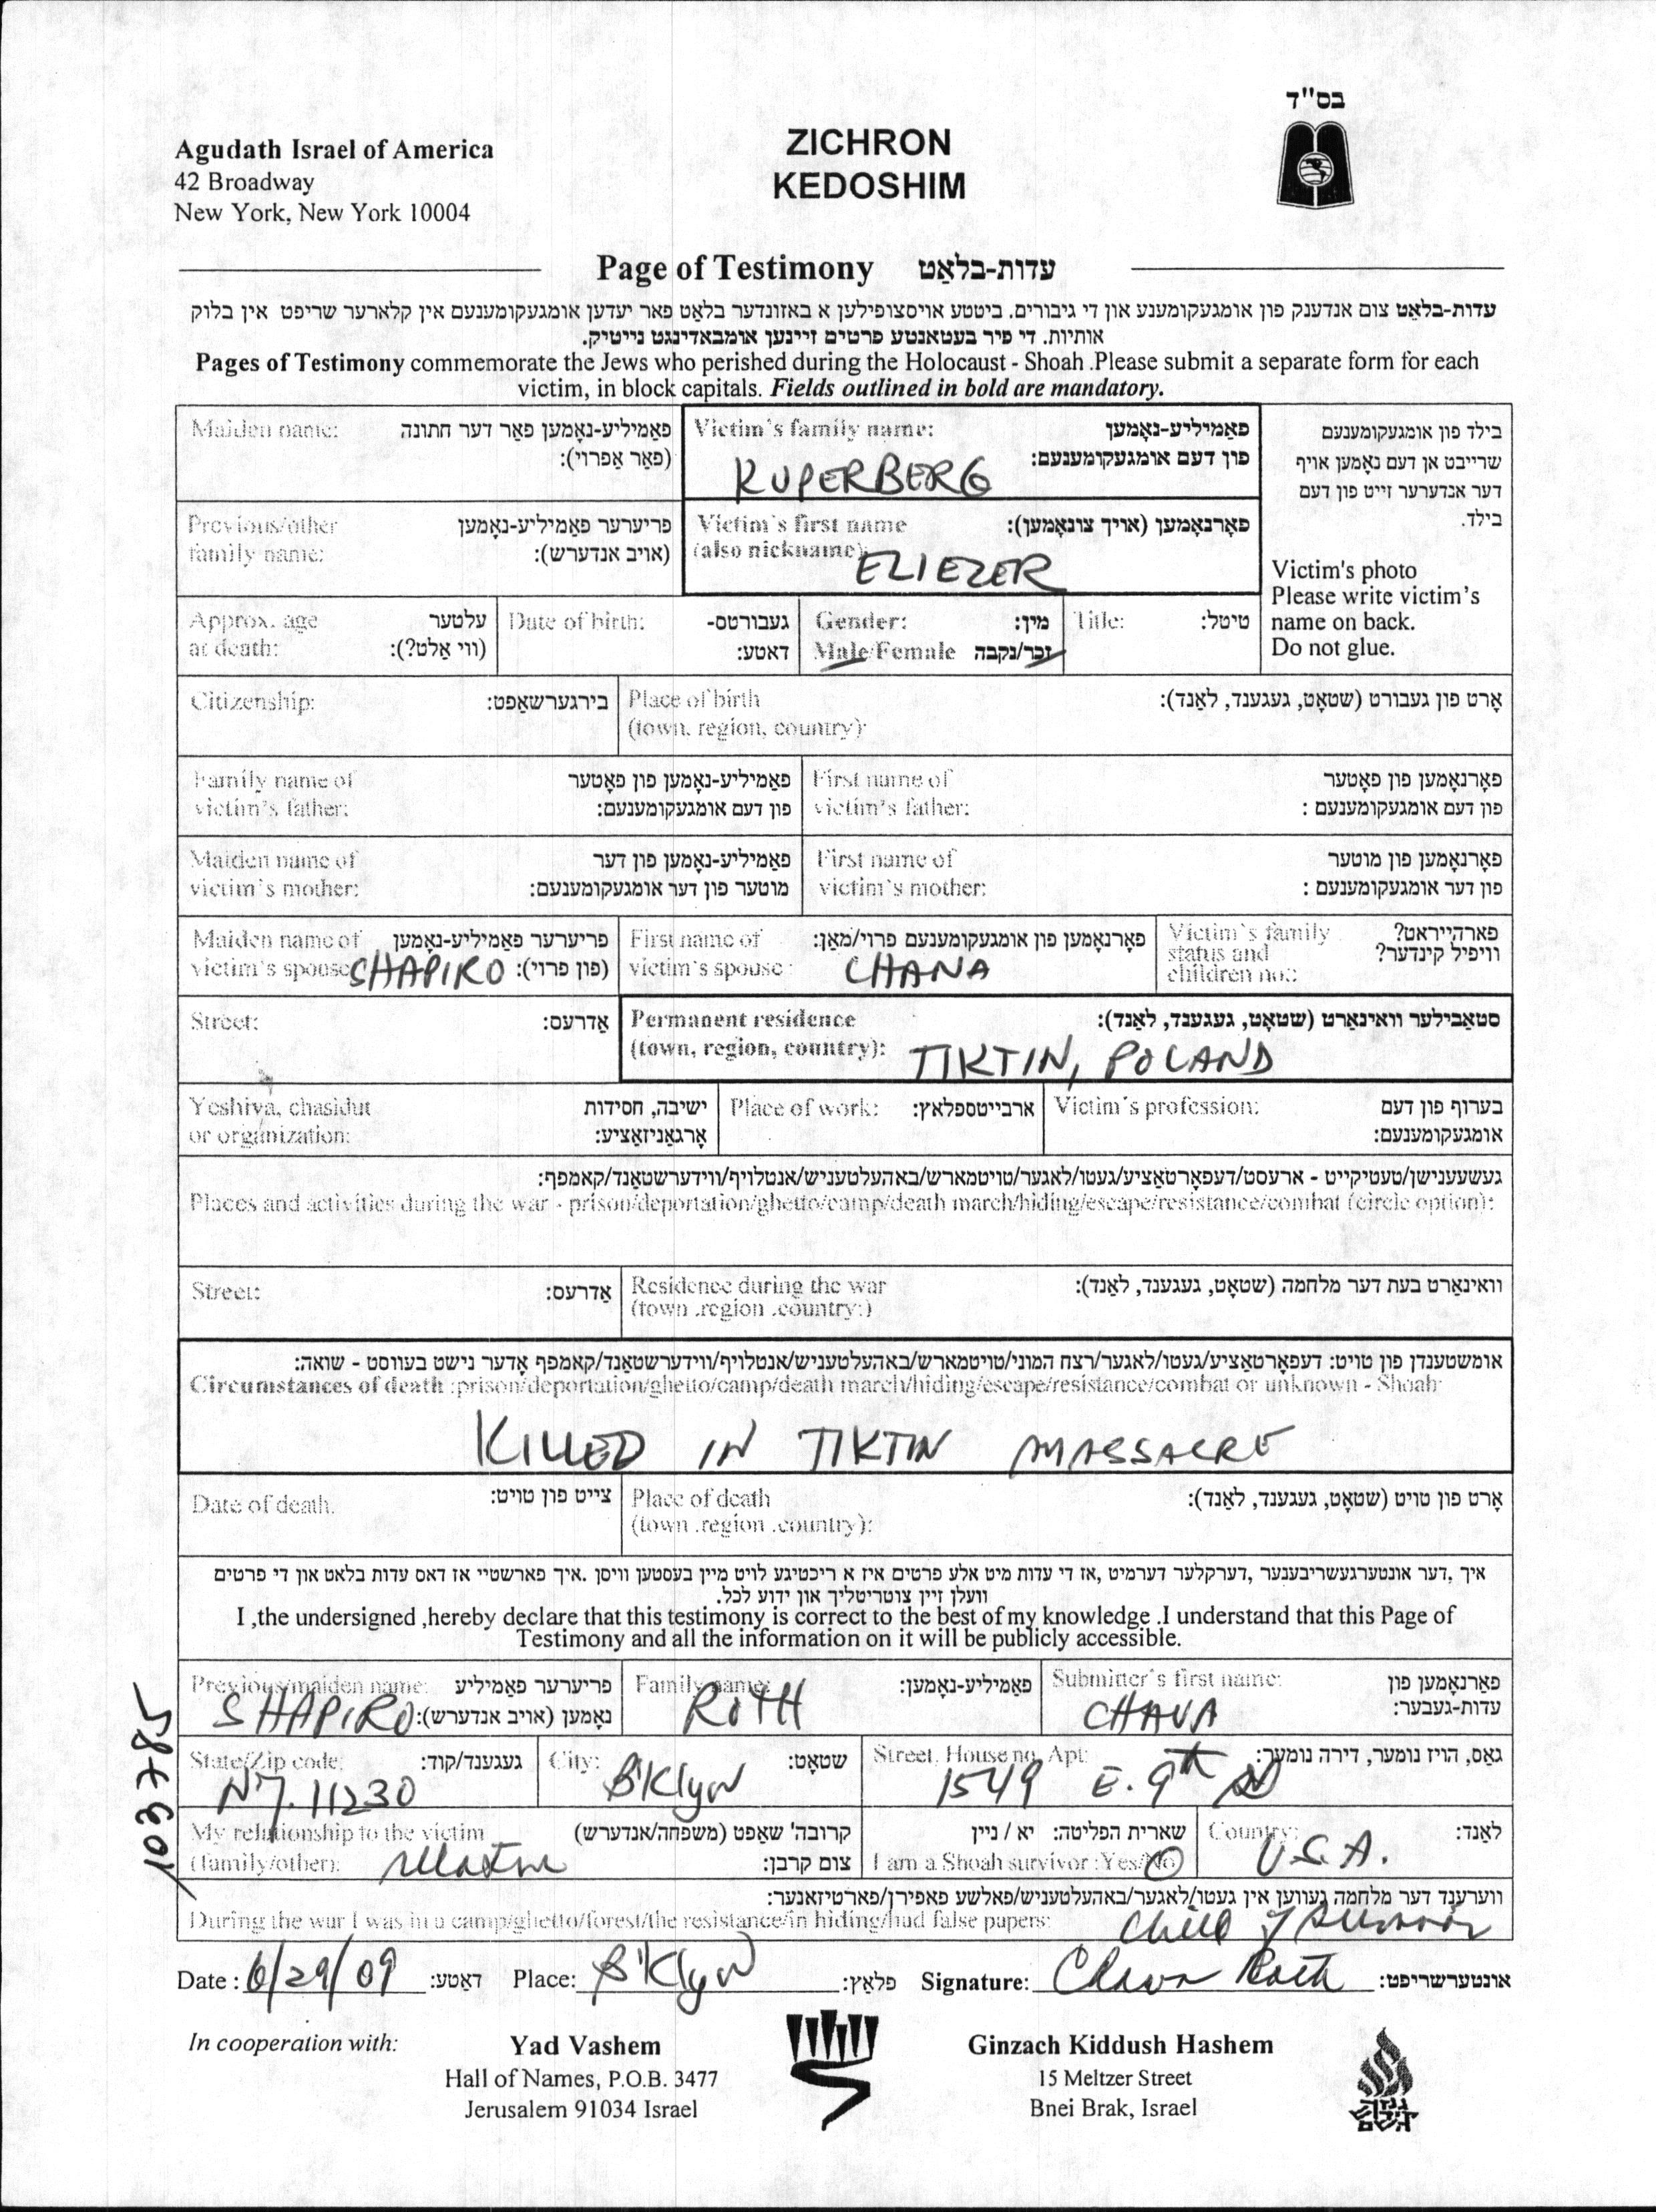 בס"ד
Agudath Israel of America
42 Broadway
New York, New York 10004
ZICHRON
KEDOSHIM
Page of Testimony עדות-בלאַט
עדות-בלאַט צום אנדענק פון אומגעקומענע און די גיבורים. ביטטע אויסצופילען א באזונדער בלאט פאר יעדען אומגעקומענעם אין קלארער שריפט אין בלוק
אותיות. די פיר בעטאנטע פרטים זיינען אומבאדינגט נייטיק.
Pages of Testimony commemorate the Jews who perished during the Holocaust - Shoah .Please submit a separate form for each
victim, in block capitals. Fields outlined in bold are mandatory.
Maiden name: פאַמיליע-נאָמען פאַר דער חתונה
(פאַר אַפרוי):
Victim's family name: פאַמיליע-נאָמען
פון דעם אומגעקומענעם:
KUPERBERG
בילד פון אומגעקומענעם
שרייבט אן דעם נאָמען אויף
דער אנדערער זייט פון דעם
בילד.
Victim's photo
Please write victim's
name on back.
Do not glue.
Previous/other פריערער פאַמיליע-נאָמען
family name: (אויב אנדערש):
Victim's first name פאָרנאָמען (אויך צונאָמען):
(also nickname): ELIEZER
Approx. age עלטער
at death: (ווי אַלט?):
Date of birth: געבורטס-
דאטע:
Gender: מין:
Male/Female זכר/נקבה
Title: טיטל:
Citizenship: בירגערשאַפט:
Place of birth אָרט פון געבורט (שטאָט, געגענד, לאַנד):
(town, region, country):
Family name of פאַמיליע-נאָמען פון פאָטער
victim's father: פון דעם אומגעקומענעם:
First name of פאָרנאָמען פון פאָטער
victim's father: פון דעם אומגעקומענעם :
Maiden name of פאַמיליע-נאָמען פון דער
victim's mother: מוטער פון דער אומגעקומענעם:
First name of פאָרנאָמען פון מוטער
victim's mother: פון דער אומגעקומענעם :
Maiden name of פריערער פאַמיליע-נאָמען
victim's spouse SHAPIRO (פון פרוי):
First name of פאָרנאָמען פון אומגעקומענעם פרוי/מאַן:
victim's spouse : CHANA
Victim's family פארהייראט?
status and וויפיל קינדער?
children no.:
Street: אַדרעס:
Permanent residence סטאַבילער וואינאָרט (שטאָט, געגענד, לאַנד):
(town, region, country): TIKTIN, POLAND
Yeshiva, chasidut ישיבה, חסידות
or organization: אָרגאַניזאַציע:
Place of work: ארבייטספלאץ:
Victim's profession: בערוף פון דעם
אומגעקומענעם:
געשעענישן/טעטיקייט - ארעסט/דעפאָרטאַציע/געטו/לאגער/טויטמארש/באהעלטעניש/אנטלויף/ווידערשטאַנד/קאמפף:
Places and activities during the war - prison/deportation/ghetto/camp/death march/hiding/escape/resistance/combat (circle option):
Street: אַדרעס:
Residence during the war וואינאַרט בעת דער מלחמה (שטאָט, געגענד, לאַנד):
(town .region .country:)
אומשטענדן פון טויט: דעפאָרטאַציע/געטו/לאגער/רצח המוני/טויטמארש/באהעלטעניש/אנטלויף/ווידערשטאַנד/קאמפף אָדער נישט בעווסט - שואה:
Circumstances of death :prison/deportation/ghetto/camp/death march/hiding/escape/resistance/combat or unknown - Shoah:
KILLED IN TIKTIN MASSACRE
Date of death. צייט פון טויט:
Place of death אָרט פון טויט (שטאָט, געגענד, לאַנד):
(town .region .country):
איך ,דער אונטערגעשריבענער ,דערקלער דערמיט ,אז די עדות מיט אלע פרטים איז א ריכטיגע לויט מיין בעסטען וויסן .איך פארשטיי אז דאס עדות בלאט און די פרטים
וועלן זיין צוטריטליך און ידוע לכל.
I ,the undersigned ,hereby declare that this testimony is correct to the best of my knowledge .I understand that this Page of
Testimony and all the information on it will be publicly accessible.
Previous/maiden name: פריערער פאַמיליע
SHAPIRO נאָמען (אויב אנדערש):
Family name: פאַמיליע-נאָמען:
ROTH
Submitter's first name: פאָרנאָמען פון
עדות-געבער:
CHAVA
State/Zip code: געגענד/קוד:
NY. 11230
City: שטאָט:
B'Klyn
Street, House no, Apt: גאַס, הויז נומער, דירה נומער:
1549 E. 9th St
My relationship to the victim קרובה' שאַפט (משפחה/אנדערש)
(family/other): relative צום קרבן:
שארית הפליטה: יא / ניין
I am a Shoah survivor :Yes/No
Country: לאַנד:
U.S.A.
ווערענד דער מלחמה געווען אין געטו/לאגער/באהעלטעניש/פאלשע פאפירן/פארטיזאנער:
During the war I was in a camp/ghetto/forest/the resistance/in hiding/had false papers: child of survivor
Date : 6/29/09 דאַטע: Place: B'Klyn פלאַץ: Signature: Chava Roth אונטערשריפט:
In cooperation with:
Yad Vashem
Hall of Names, P.O.B. 3477
Jerusalem 91034 Israel
Ginzach Kiddush Hashem
15 Meltzer Street
Bnei Brak, Israel